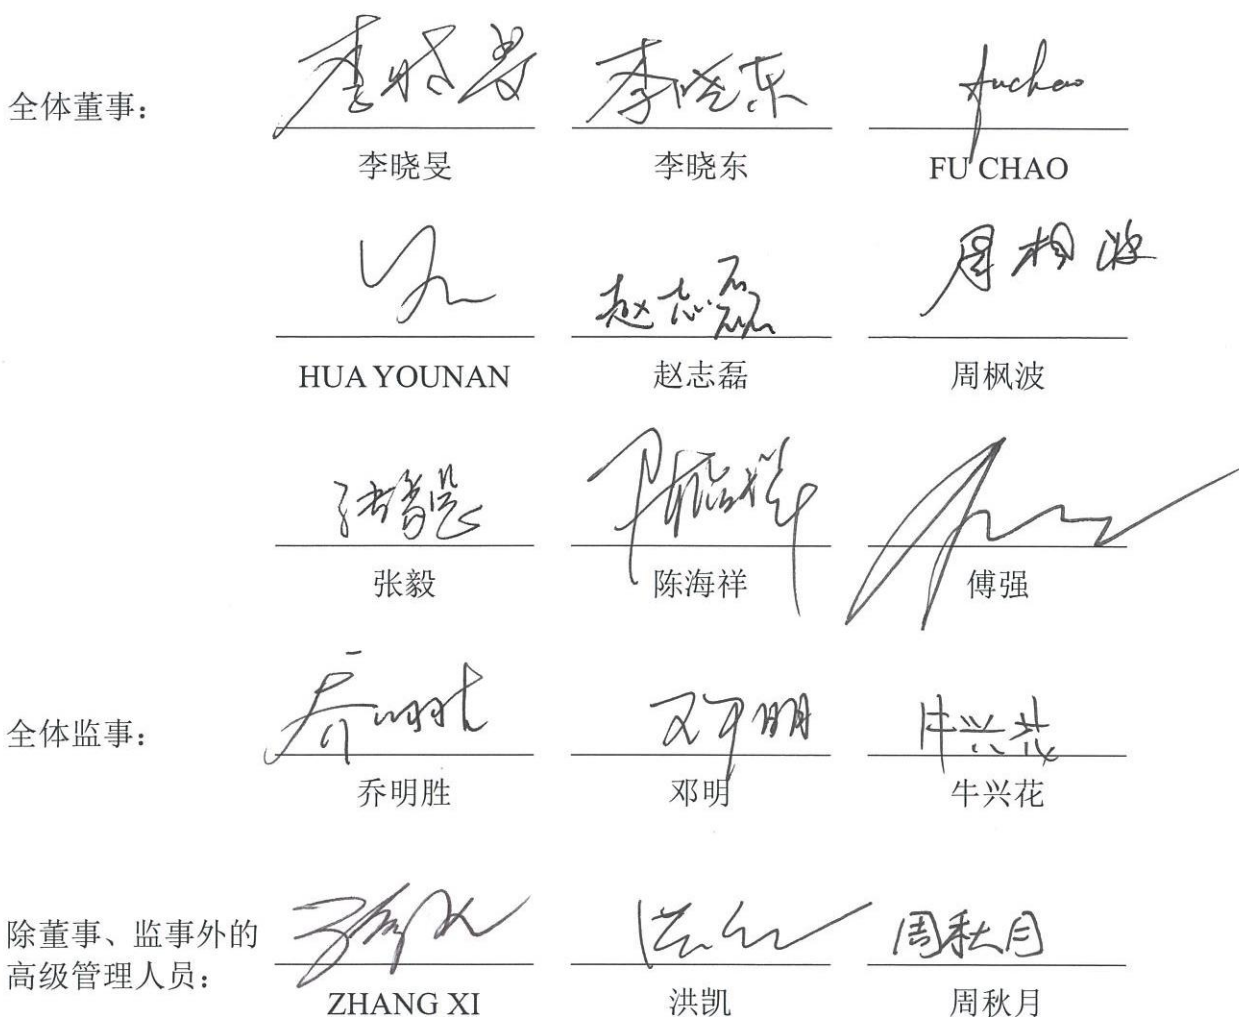 全体董事：
李晓旻 李晓东 FU CHAO
HUA YOUNAN 赵志磊 周枫波
张毅 陈海祥 傅强
全体监事：
乔明胜 邓明 牛兴花
除董事、监事外的
高级管理人员：
ZHANG XI 洪凯 周秋月